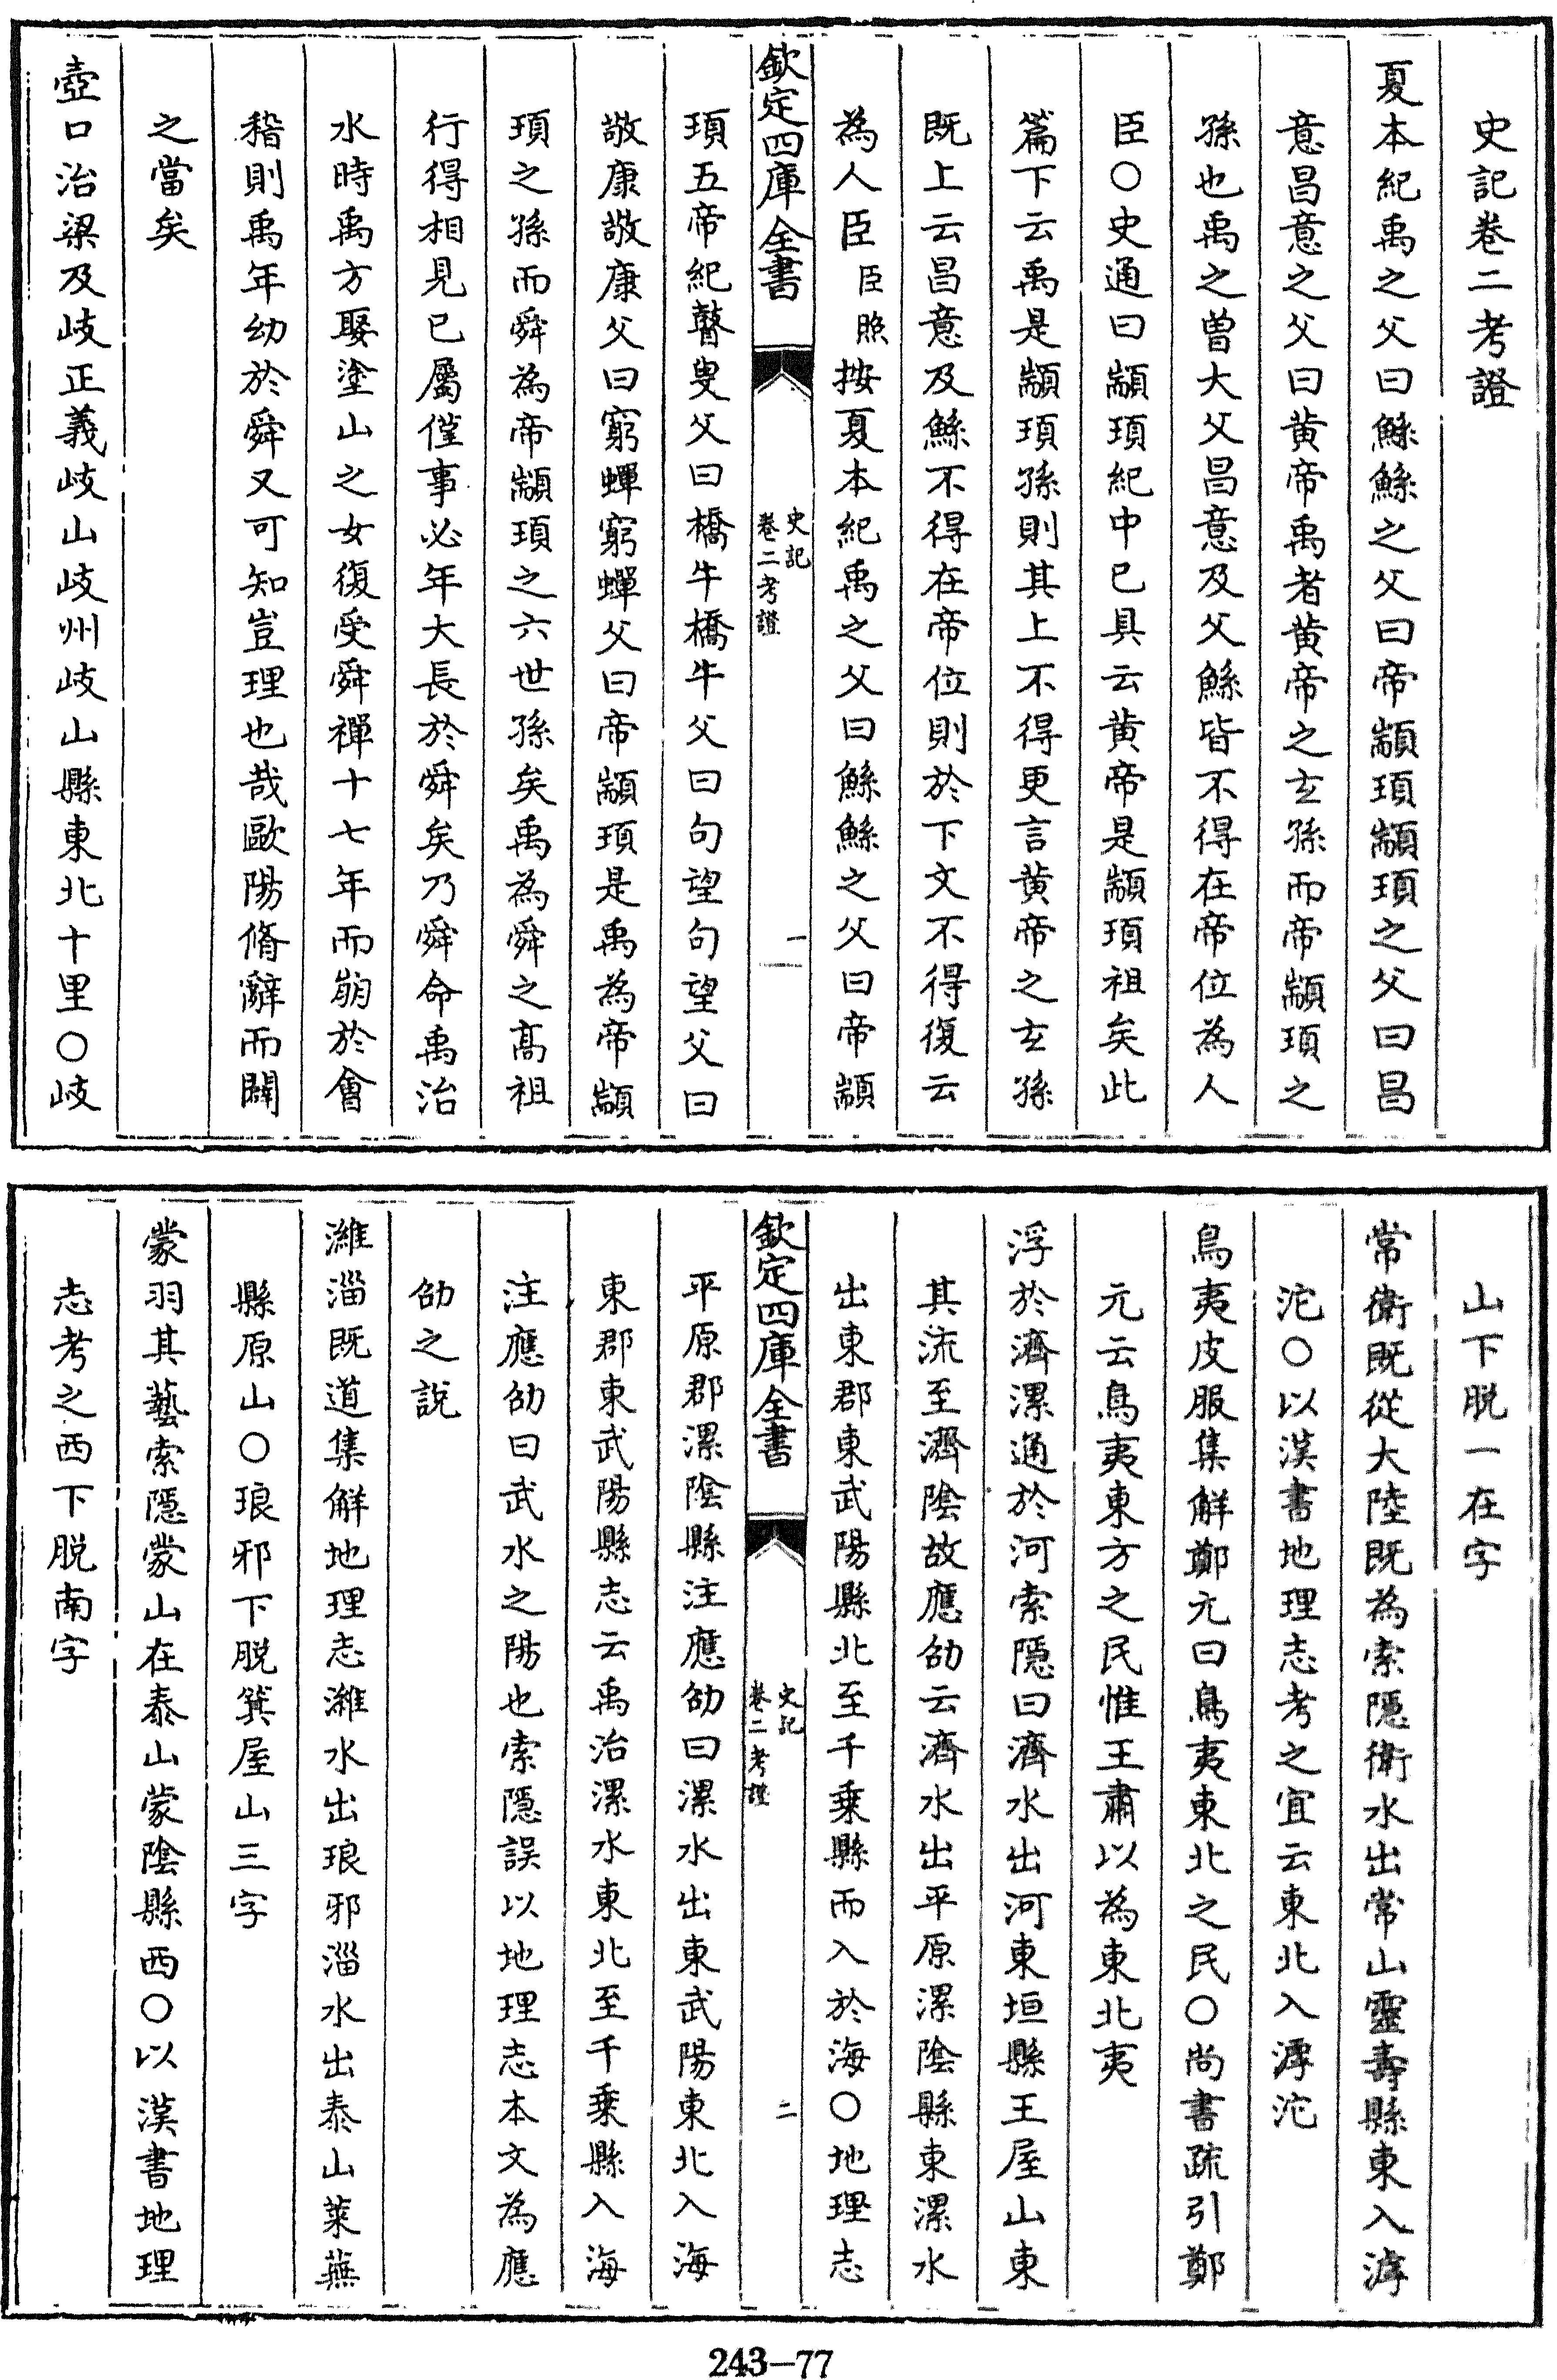 史記卷二考證
夏本紀禹之父曰鯀鯀之父曰帝顓頊顓頊之父曰昌
意昌意之父曰黄帝禹者黄帝之玄孫而帝顓頊之
孫也禹之曽大父昌意及父鯀皆不得在帝位為人
臣○史通曰顓頊紀中已具云黄帝是顓頊祖矣此
篇下云禹是顓頊孫則其上不得更言黄帝之玄孫
既上云昌意及鯀不得在帝位則於下文不得復云
為人臣臣照按夏本紀禹之父曰鯀鯀之父曰帝顓
欽定四庫全書
史記
卷二考證
一
頊五帝紀瞽叟父曰橋牛橋牛父曰句望句望父曰
敬康敬康父曰窮蟬窮蟬父曰帝顓頊是禹為帝顓
頊之孫而舜為帝顓頊之六世孫矣禹為舜之髙祖
行得相見已屬僅事必年大長於舜矣乃舜命禹治
水時禹方娶塗山之女復受舜禪十七年而崩於會
稽則禹年幼於舜又可知豈理也哉歐陽脩辭而闢
之當矣
壺口治梁及岐正義岐山岐州岐山縣東北十里○岐
山下脱一在字
常衛既從大陸既為索隠衛水出常山靈壽縣東入滹
沱○以漢書地理志考之宜云東北入滹沱
鳥夷皮服集解鄭元曰鳥夷東北之民○尚書疏引鄭
元云鳥夷東方之民惟王肅以為東北夷
浮於濟漯通於河索隠曰濟水出河東垣縣王屋山東
其流至濟隂故應劭云濟水出平原漯隂縣東漯水
出東郡東武陽縣北至千乗縣而入於海○地理志
欽定四庫全書
史記
卷二考證
二
平原郡漯隂縣注應劭曰漯水出東武陽東北入海
東郡東武陽縣志云禹治漯水東北至千乗縣入海
注應劭曰武水之陽也索隠誤以地理志本文為應
劭之説
濰淄既道集解地理志濰水出琅邪淄水出泰山萊蕪
縣原山○琅邪下脱箕屋山三字
蒙羽其藝索隠蒙山在泰山蒙隂縣西○以漢書地理
志考之西下脱南字
243-77